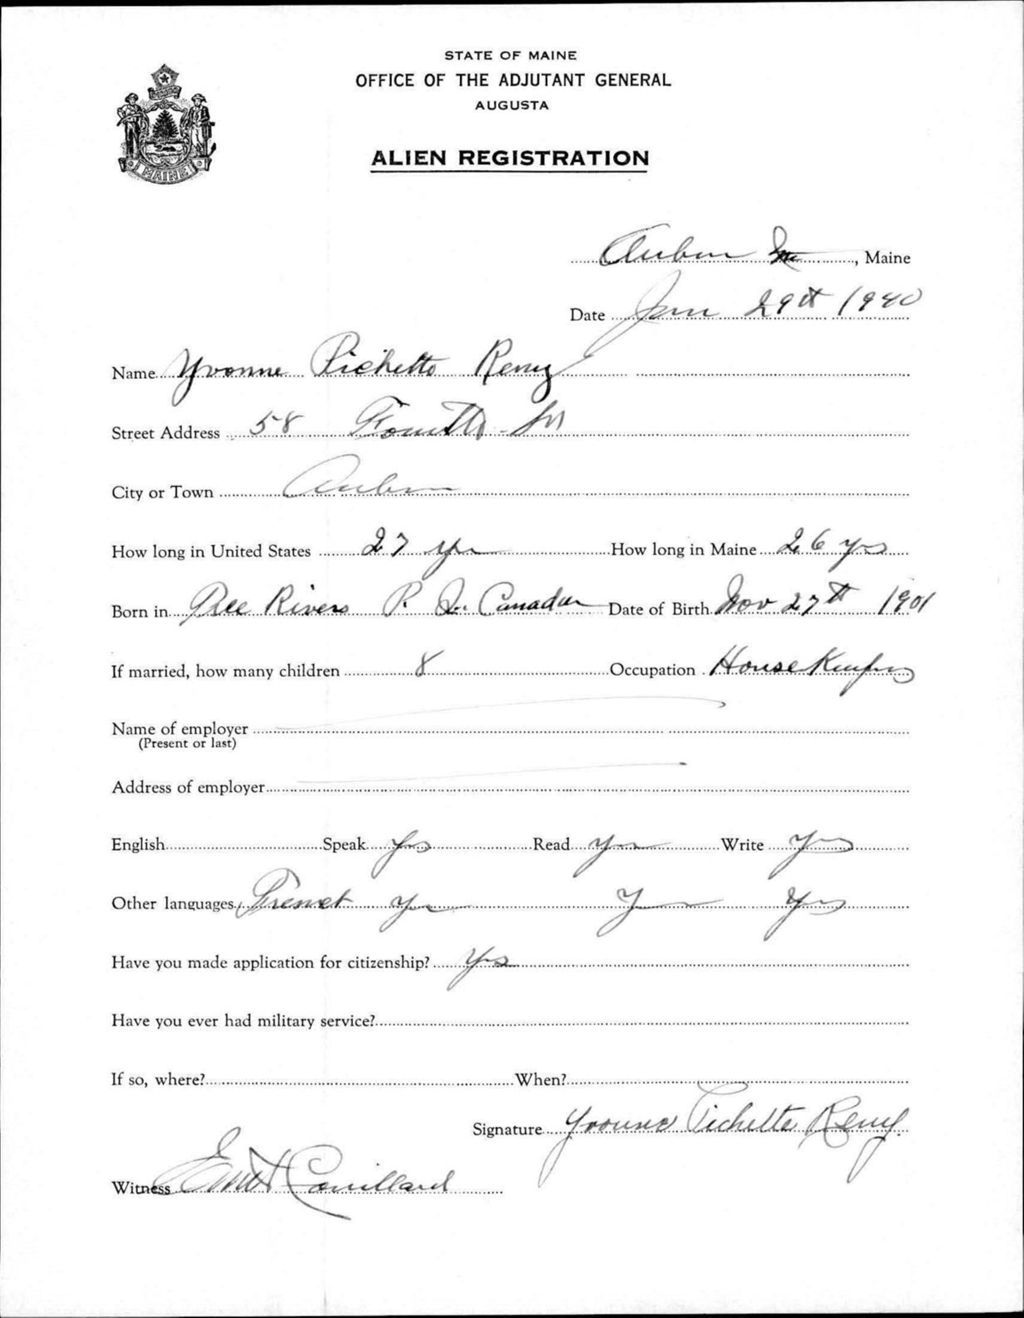 STATE OF MAINE
OFFICE OF THE ADJUTANT GENERAL
AUGUSTA
ALIEN REGISTRATION
MAINE
Auburn Me, Maine
Date Jan 29th 1940
Name Yvonne Pichette Remy
Street Address 58 Fourth St
City or Town Auburn
How long in United States 27 yrs How long in Maine 26 yrs
Born in Three Rivers P. Q. Canada Date of Birth Nov 27th 1901
If married, how many children 8 Occupation House Keeping
Name of employer
(Present or last)
Address of employer
English Speak Yes Read Yes Write Yes
Other languages French Yes Yes Yes
Have you made application for citizenship? Yes
Have you ever had military service?
If so, where? When?
Signature Yvonne Pichette Remy
Witness Couillard